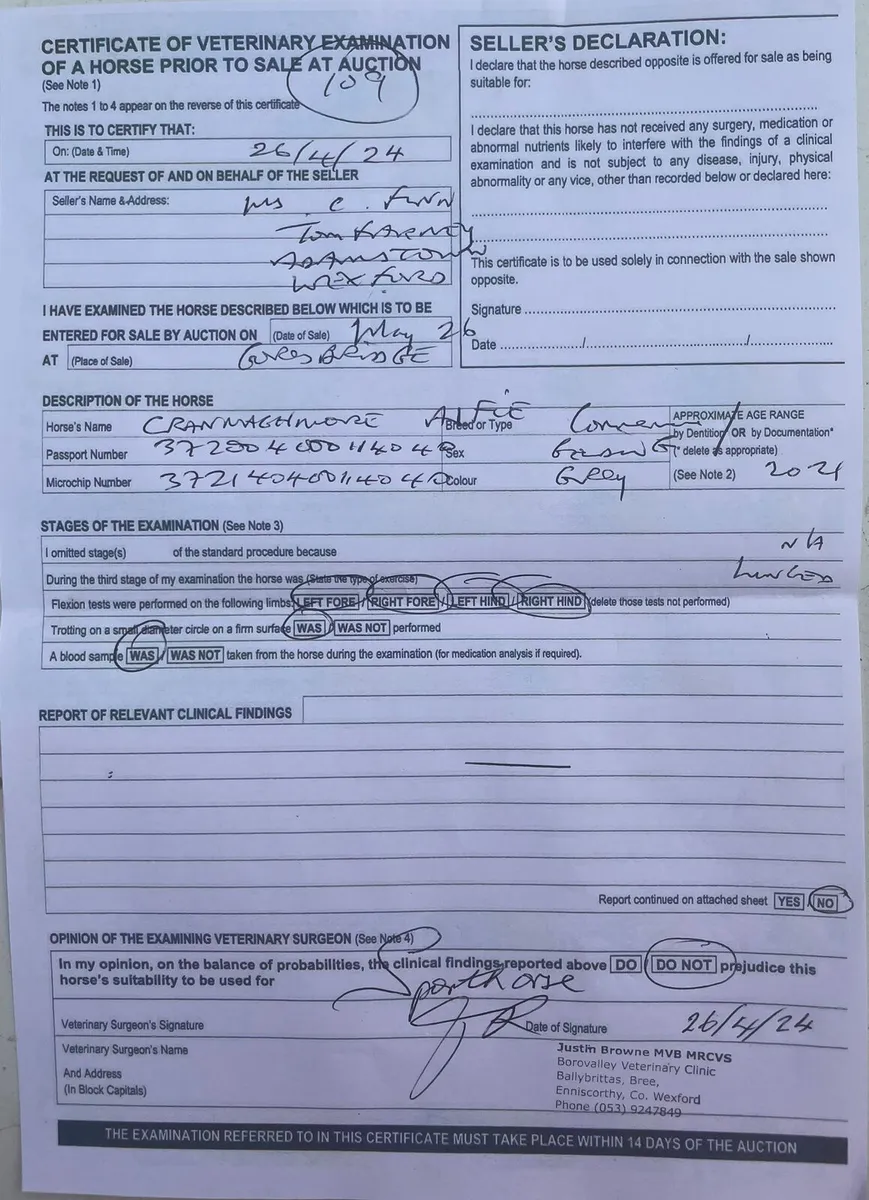 CERTIFICATE OF VETERINARY EXAMINATION
OF A HORSE PRIOR TO SALE AT AUCTION
109
(See Note 1)
The notes 1 to 4 appear on the reverse of this certificate
THIS IS TO CERTIFY THAT:
On: (Date & Time) 26/4/24
AT THE REQUEST OF AND ON BEHALF OF THE SELLER
Seller's Name & Address: Ms C.
ADAMSTOWN
WEXFORD
I HAVE EXAMINED THE HORSE DESCRIBED BELOW WHICH IS TO BE
ENTERED FOR SALE BY AUCTION ON (Date of Sale) May 26
AT (Place of Sale) GORESBRIDGE
SELLER'S DECLARATION:
I declare that the horse described opposite is offered for sale as being
suitable for:
I declare that this horse has not received any surgery, medication or
abnormal nutrients likely to interfere with the findings of a clinical
examination and is not subject to any disease, injury, physical
abnormality or any vice, other than recorded below or declared here:
This certificate is to be used solely in connection with the sale shown
opposite.
Signature
Date / /
DESCRIPTION OF THE HORSE
Horse's Name CRANMAGHMORE ALFIE Breed or Type APPROXIMATE AGE RANGE
by Dentition / OR by Documentation*
Passport Number Sex (* delete as appropriate)
Microchip Number Colour Grey (See Note 2) 2021
STAGES OF THE EXAMINATION (See Note 3)
I omitted stage(s) of the standard procedure because N/A
During the third stage of my examination the horse was (State the type of exercise) LUNGED
Flexion tests were performed on the following limbs: LEFT FORE / RIGHT FORE / LEFT HIND / RIGHT HIND (delete those tests not performed)
Trotting on a small diameter circle on a firm surface WAS / WAS NOT performed
A blood sample WAS / WAS NOT taken from the horse during the examination (for medication analysis if required).
REPORT OF RELEVANT CLINICAL FINDINGS
Report continued on attached sheet YES / NO
OPINION OF THE EXAMINING VETERINARY SURGEON (See Note 4)
In my opinion, on the balance of probabilities, the clinical findings reported above DO / DO NOT prejudice this
horse's suitability to be used for Sporthorse
Veterinary Surgeon's Signature Date of Signature 26/4/24
Veterinary Surgeon's Name
And Address
(In Block Capitals)
Justin Browne MVB MRCVS
Borovalley Veterinary Clinic
Ballybrittas, Bree,
Enniscorthy, Co. Wexford
Phone (053) 9247849
THE EXAMINATION REFERRED TO IN THIS CERTIFICATE MUST TAKE PLACE WITHIN 14 DAYS OF THE AUCTION